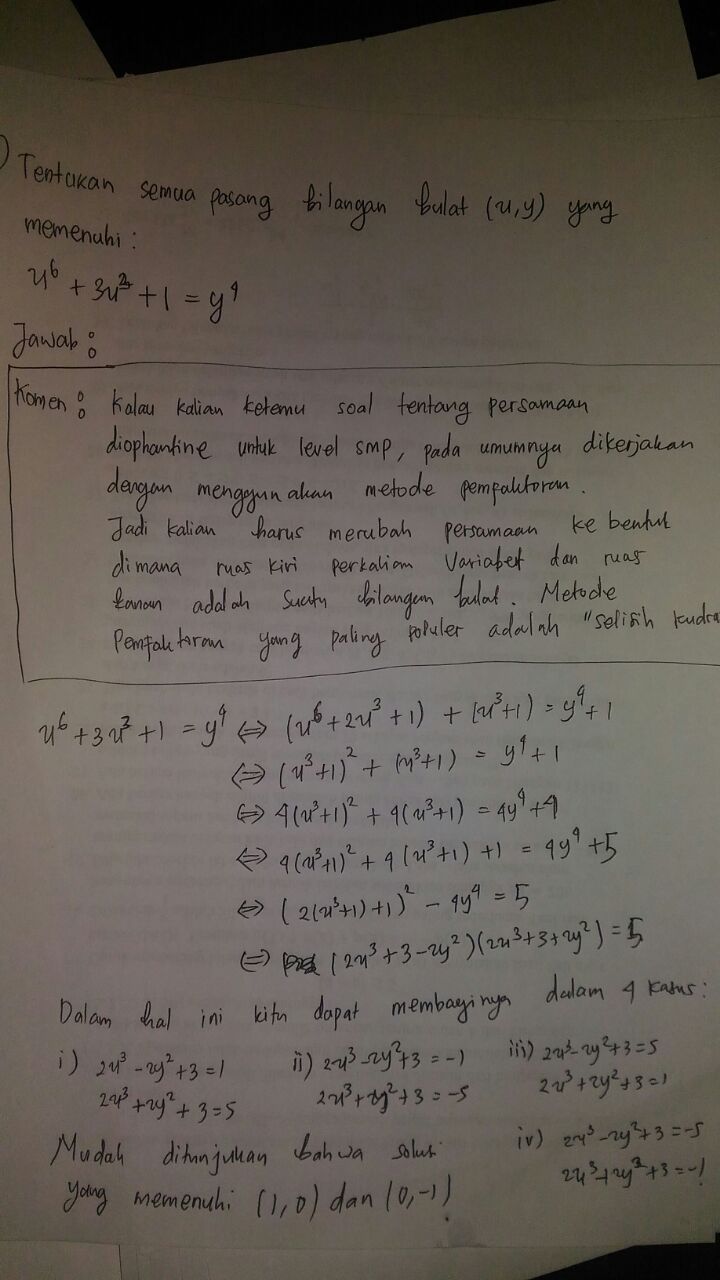 ) Tentukan semua pasang bilangan bulat (u,y) yang
memenuhi :
u⁶ + 3u³ + 1 = y⁴
Jawab :
Komen : Kalau kalian ketemu soal tentang persamaan
diophantine untuk level smp, pada umumnya dikerjakan
dengan menggunakan metode pemfaktoran.
Jadi kalian harus merubah persamaan ke bentuk
dimana ruas kiri perkalian Variabel dan ruas
kanan adalah Suatu bilangan bulat. Metode
Pemfaktoran yang paling populer adalah "selisih kudra
u⁶ + 3u³ + 1 = y⁴ ⇔ (u⁶ + 2u³ + 1) + (u³+1) = y⁴ + 1
⇔ (u³+1)² + (u³+1) = y⁴ + 1
⇔ 4(u³+1)² + 4(u³+1) = 4y⁴ + 4
⇔ 4(u³+1)² + 4(u³+1) + 1 = 4y⁴ + 5
⇔ (2(u³+1)+1)² - 4y⁴ = 5
⇔ (2u³ + 3 - 2y²)(2u³ + 3 + 2y²) = 5
Dalam hal ini kita dapat membaginya dalam 4 kasus :
i) 2u³ - 2y² + 3 = 1
2u³ + 2y² + 3 = 5
ii) 2u³ - 2y² + 3 = -1
2u³ + 2y² + 3 = -5
iii) 2u³ - 2y² + 3 = 5
2u³ + 2y² + 3 = 1
iv) 2u³ - 2y² + 3 = -5
2u³ + 2y² + 3 = -1
Mudah ditunjukan bahwa solusi
yang memenuhi (1,0) dan (0,-1)